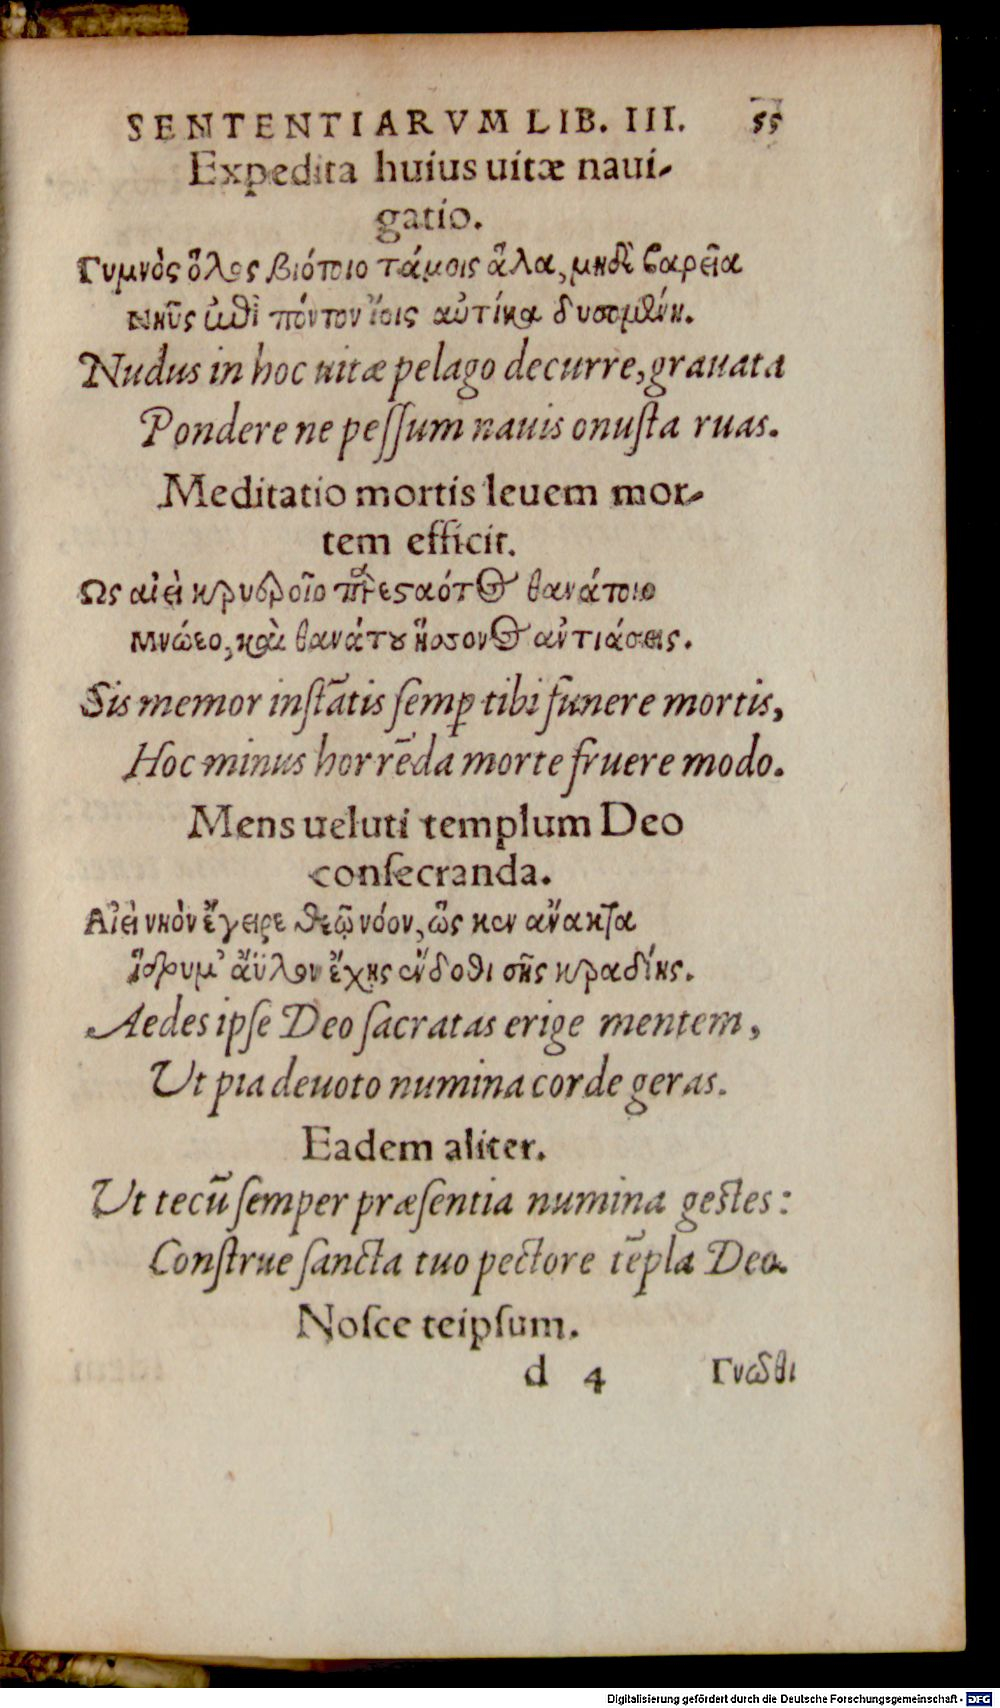 SENTENTIARVM LIB. III. 55
Expedita huius uitæ naui-
gatio.
Γυμνὸς ὅλος βιότοιο τάμοις ἅλα, μηδὲ βαρεῖα
Νηῦς ἐπὶ πόντον ἴοις αὐτίκα
Nudus in hoc uitæ pelago decurre, grauata
Pondere ne peſſum nauis onuſta ruas.
Meditatio mortis leuem mor-
tem efficit.
Ως αἰεὶ κρυεροῖο παρεσταότος θανάτοιο
Μνώεο, καὶ θανάτου ἥσσονος ἀντιάσεις.
Sis memor inſtātis ſemꝑ tibi funere mortis,
Hoc minus horrēda morte fruere modo.
Mens ueluti templum Deo
conſecranda.
Αἰεὶ νηὸν ἔγειρε θεῷ νόον, ὥς κεν ἄνακτα
ἄϋλον ἔχῃς ἔνδοθι σῆς κραδίης.
Aedes ipſe Deo ſacratas erige mentem,
Ut pia deuoto numina corde geras.
Eadem aliter.
Ut tecū ſemper præſentia numina geſtes:
Conſtrue ſancta tuo pectore tēpla Deo.
Noſce teipſum.
d 4 Γνῶθι
Digitalisierung gefördert durch die Deutsche Forschungsgemeinschaft - DFG